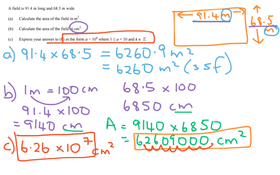 A field is 91.4 m long and 68.5 m wide.
(a) Calculate the area of the field in m².
(b) Calculate the area of the field in cm².
(c) Express your answer to (b) in the form a × 10ᵏ where 1 ≤ a < 10 and k ∈ ℤ.
91.4 m
68.5 m
a) 91.4 × 68.5 = 6260.9 m²
= 6260 m² (3sf)
b) 1m = 100cm
91.4 × 100
= 9140 cm
68.5 × 100
6850 cm
A = 9140 × 6850
= 62609000, cm²
c) 6.26 × 10⁷ cm²